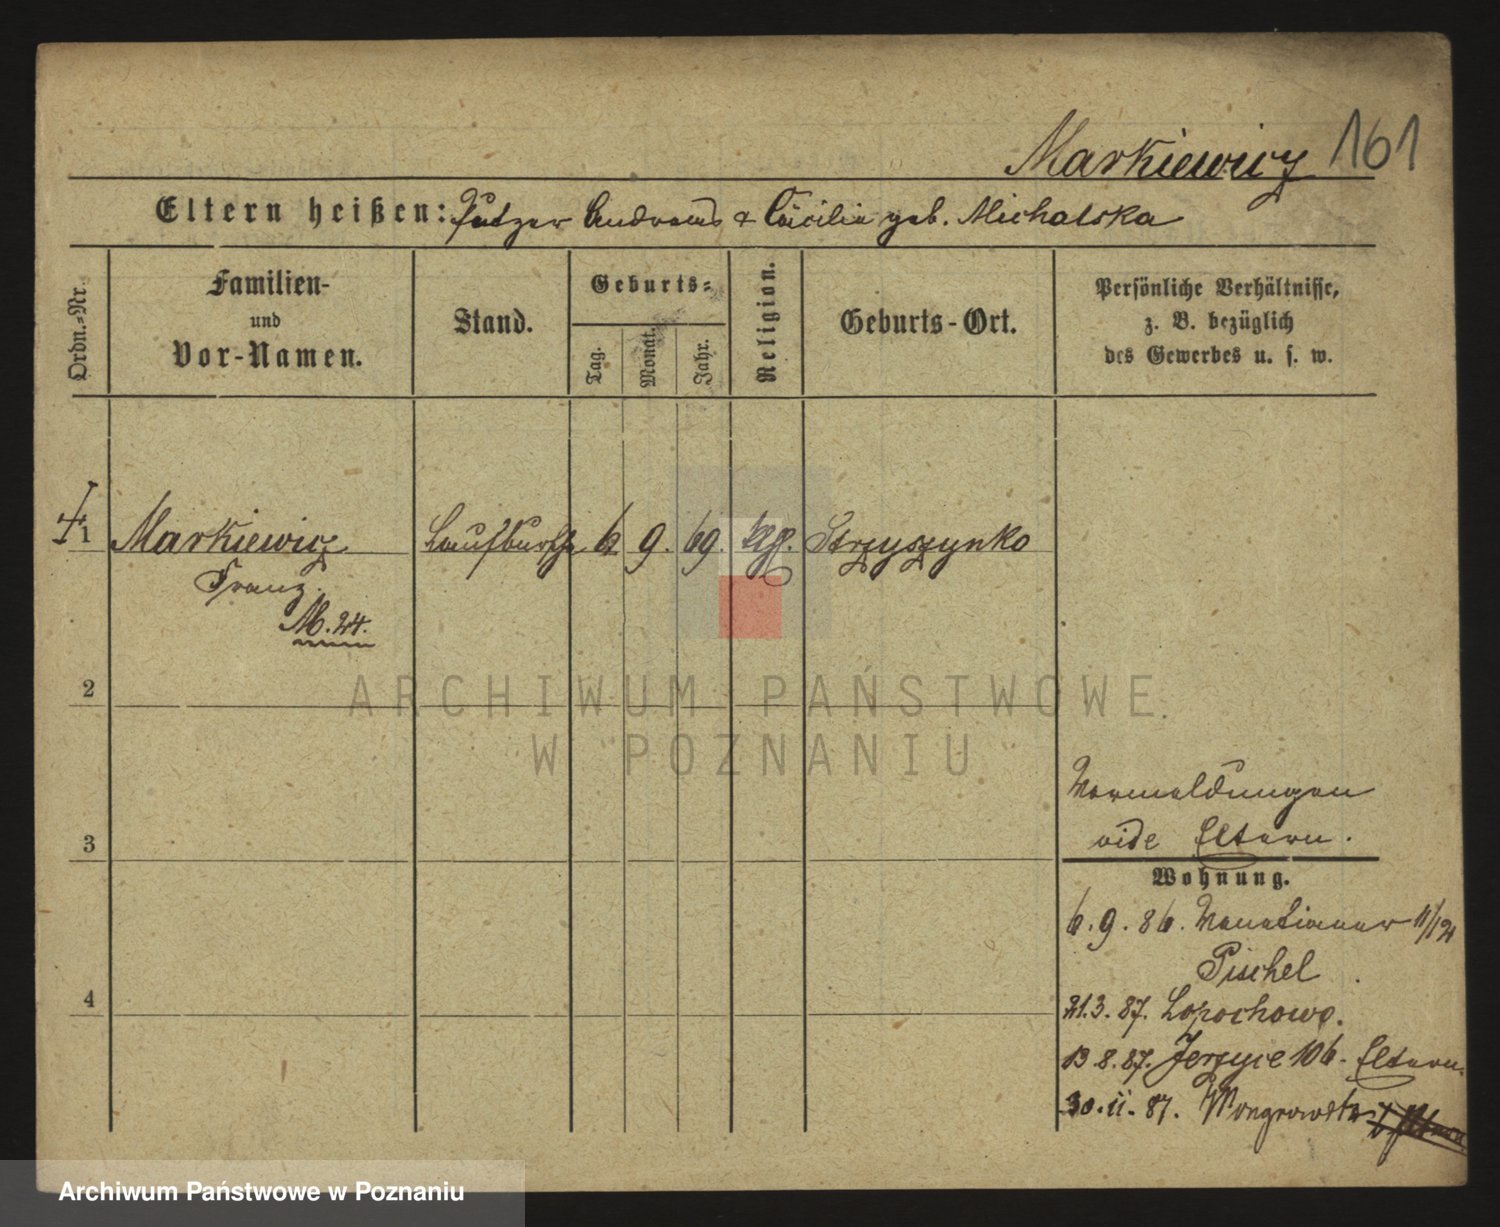 Markiewicz 161
Eltern heißen: Putzer Andreas & Cäcilie geb. Michalska
Ordn.-Nr.
Familien-
und
Vor-Namen.
Stand.
Geburts-
Tag.
Monat.
Jahr.
Religion.
Geburts-Ort.
Persönliche Verhältnisse,
z. B. bezüglich
des Gewerbes u. s. w.
1 Markiewicz Laufbursche 6 9. 69. Strzyszynko
Franz.
M. 24.
2
ARCHIWUM PAŃSTWOWE
W POZNANIU
Vormeldungen
3 vide Eltern.
Wohnung.
6. 9. 86. Venetianer 11/12
Pischel
4 21.3. 87. Lopochowo.
13.8.87. Jerzyce 106. Eltern.
30. 11. 87. Wongrowitz
Archiwum Państwowe w Poznaniu